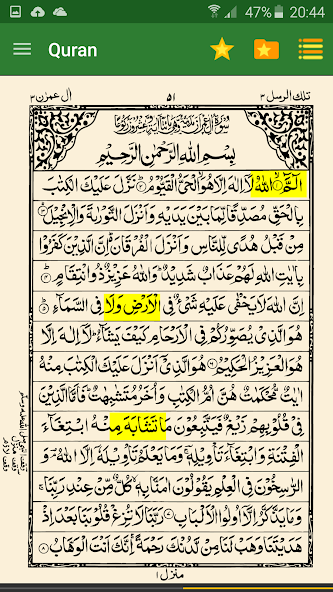 47% 20:44
Quran
تلك الرسل ٣ ٥١ اٰل عمرٰن ٣
بِسْمِ اللهِ الرَّحْمٰنِ الرَّحِيْمِ
الٓمَّٓ ۙ﴿۱﴾ اللهُ لَاۤ اِلٰهَ اِلَّا هُوَ الْحَيُّ الْقَيُّوْمُ ﴿۲﴾ نَزَّلَ عَلَيْكَ الْكِتٰبَ
بِالْحَقِّ مُصَدِّقًا لِّمَا بَيْنَ يَدَيْهِ وَاَنْزَلَ التَّوْرٰىةَ وَالْاِنْجِيْلَ ﴿۳﴾
مِنْ قَبْلُ هُدًى لِّلنَّاسِ وَاَنْزَلَ الْفُرْقَانَ اِنَّ الَّذِيْنَ كَفَرُوْا
بِاٰيٰتِ اللهِ لَهُمْ عَذَابٌ شَدِيْدٌ وَاللهُ عَزِيْزٌ ذُو انْتِقَامٍ ﴿۴﴾
اِنَّ اللهَ لَا يَخْفٰى عَلَيْهِ شَيْءٌ فِي الْاَرْضِ وَلَا فِي السَّمَآءِ ﴿۵﴾
هُوَ الَّذِيْ يُصَوِّرُكُمْ فِي الْاَرْحَامِ كَيْفَ يَشَآءُ لَاۤ اِلٰهَ اِلَّا
هُوَ الْعَزِيْزُ الْحَكِيْمُ ﴿۶﴾ هُوَ الَّذِيْۤ اَنْزَلَ عَلَيْكَ الْكِتٰبَ مِنْهُ
اٰيٰتٌ مُّحْكَمٰتٌ هُنَّ اُمُّ الْكِتٰبِ وَاُخَرُ مُتَشٰبِهٰتٌ فَاَمَّا الَّذِيْنَ
فِيْ قُلُوْبِهِمْ زَيْغٌ فَيَتَّبِعُوْنَ مَا تَشَابَهَ مِنْهُ ابْتِغَآءَ
الْفِتْنَةِ وَابْتِغَآءَ تَاْوِيْلِهٖ وَمَا يَعْلَمُ تَاْوِيْلَهٗۤ اِلَّا اللهُ وَ
الرّٰسِخُوْنَ فِي الْعِلْمِ يَقُوْلُوْنَ اٰمَنَّا بِهٖ كُلٌّ مِّنْ عِنْدِ رَبِّنَا
وَمَا يَذَّكَّرُ اِلَّاۤ اُولُوا الْاَلْبَابِ ﴿۷﴾ رَبَّنَا لَا تُزِغْ قُلُوْبَنَا بَعْدَ اِذْ
هَدَيْتَنَا وَهَبْ لَنَا مِنْ لَّدُنْكَ رَحْمَةً اِنَّكَ اَنْتَ الْوَهَّابُ ﴿۸﴾
منزل ١